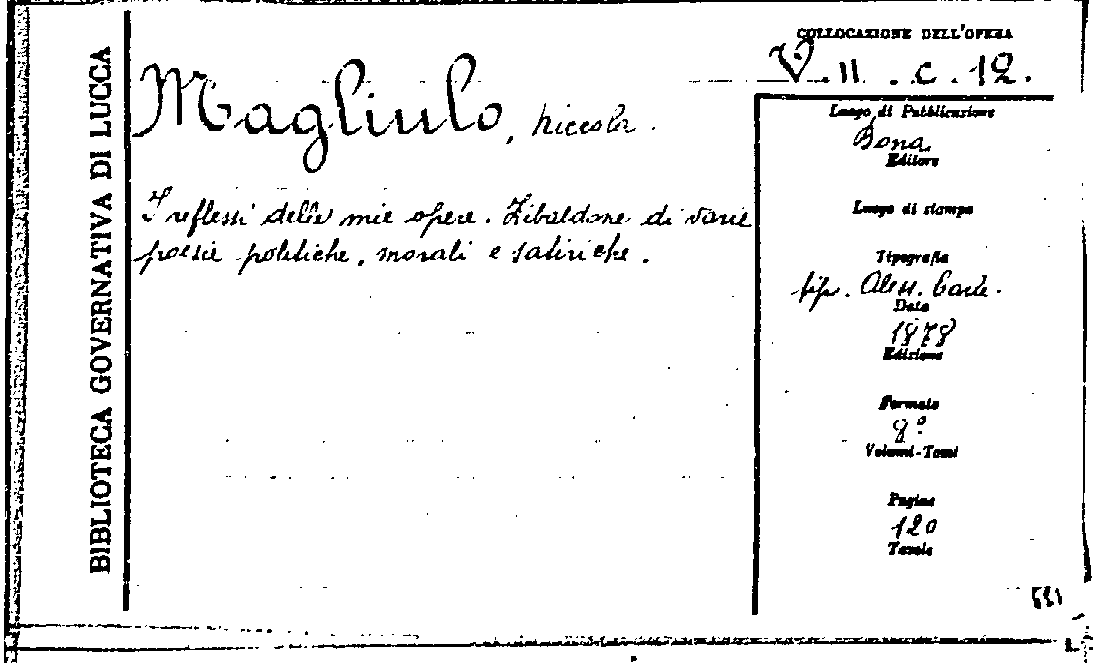 BIBLIOTECA GOVERNATIVA DI LUCCA
COLLOCAZIONE DELL'OPERA
V. 11. c. 12.
Magliulo, Niccola.
I riflessi delle mie opere. Zibaldone di varie
poesie politiche, morali e satiriche.
Luogo di Pubblicazione
Bona
Editore
Luogo di stampa
Tipografia
tip. Aless.
Data
1878
Edizione
Formato
8°
Volumi-Tomi
Pagine
120
Tavole